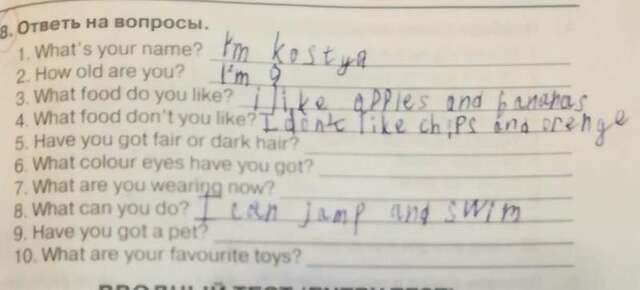 8. Ответь на вопросы.
1. What's your name? I'm Kostya
2. How old are you? I'm 9
3. What food do you like? i like apples and bananas
4. What food don't you like? I don't like chips and orenge
5. Have you got fair or dark hair?
6. What colour eyes have you got?
7. What are you wearing now?
8. What can you do? I can jamp and swim
9. Have you got a pet?
10. What are your favourite toys?
ВВОДНЫЙ ТЕСТ (ENTRY TEST)